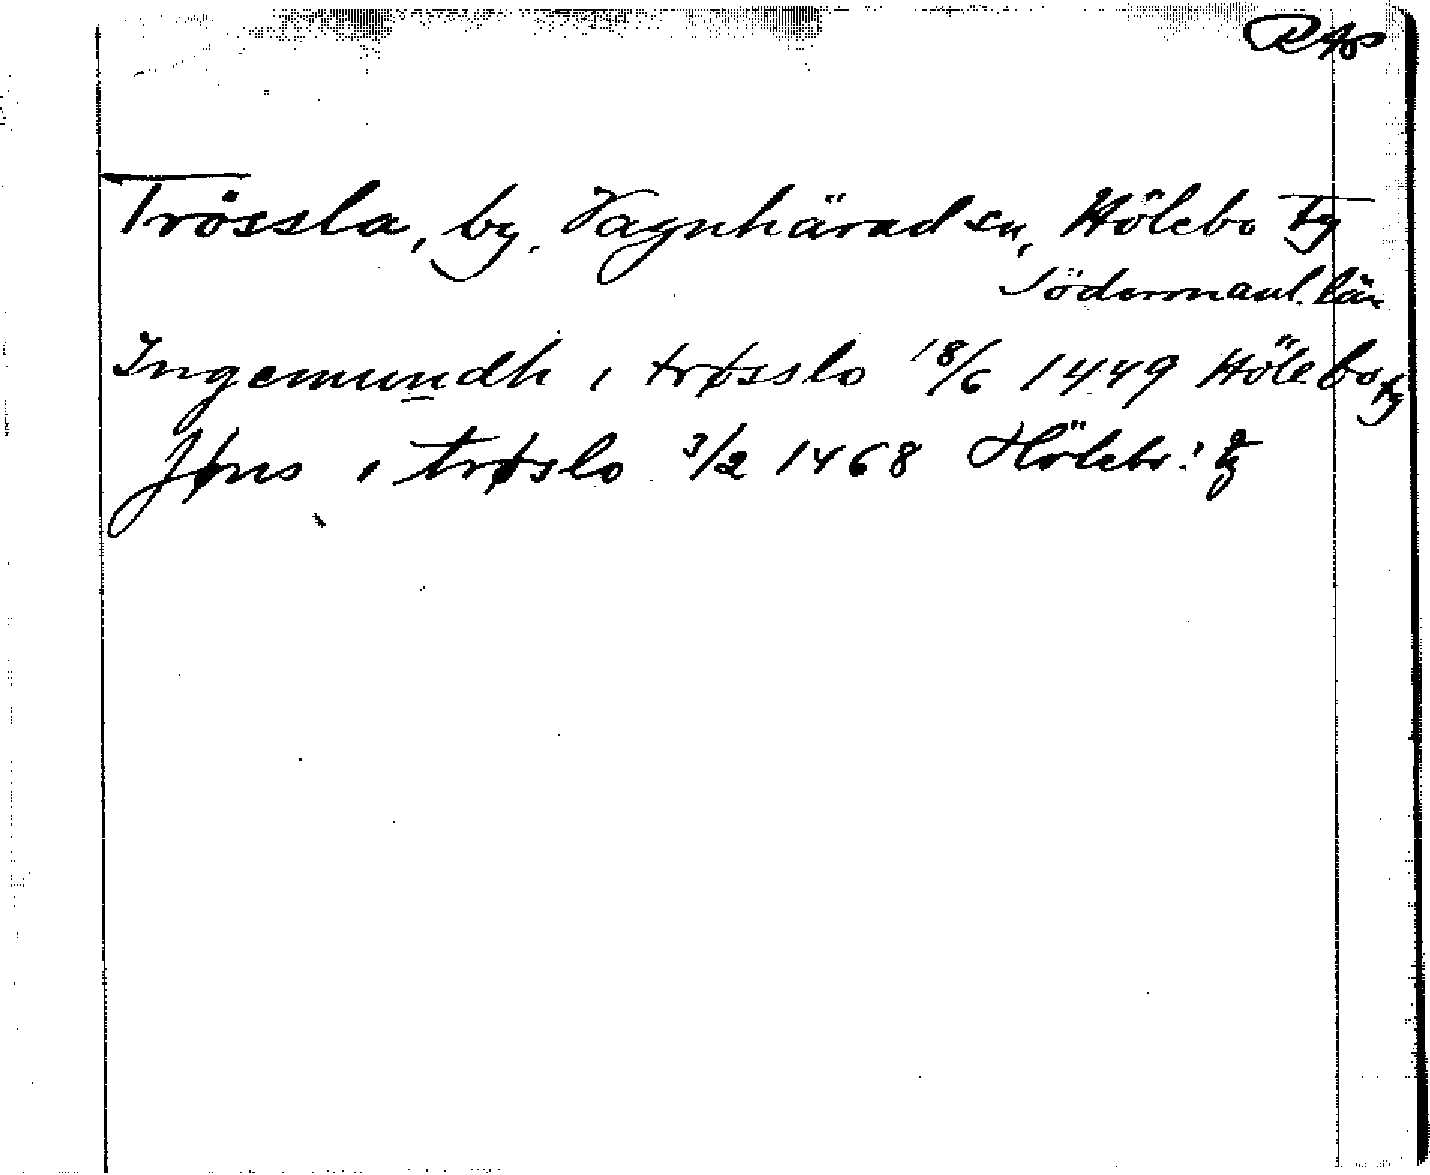 Trössla, by, Vagnhärad sn, Hölebo tg
Södermanl. län
Ingemundh i trøsslo 18/6 1449 Hölebo tg
Jøns i trøslo 3/2 1468 Hölebo tg